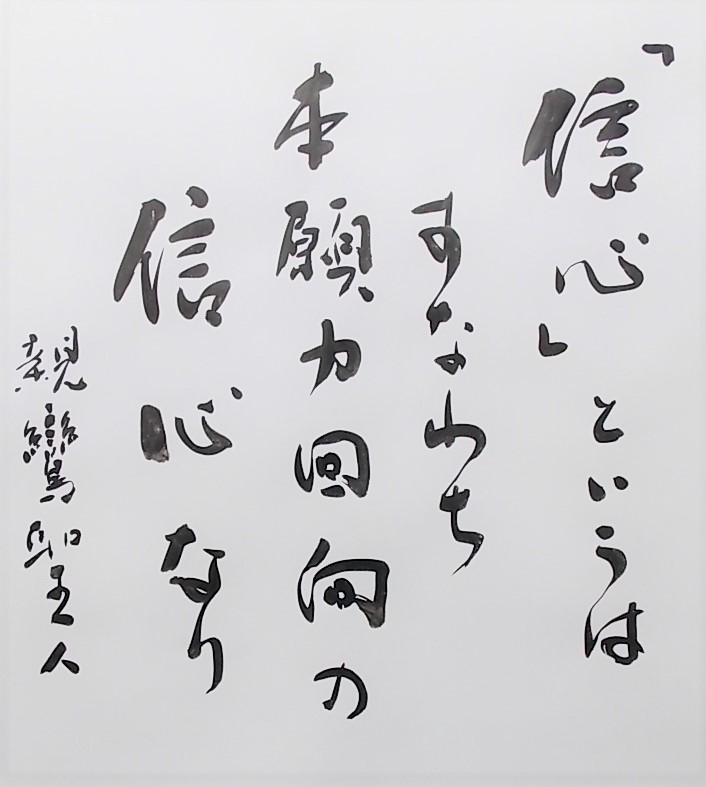 「信心」というは
すなわち
本願力回向の
信心なり
親鸞聖人